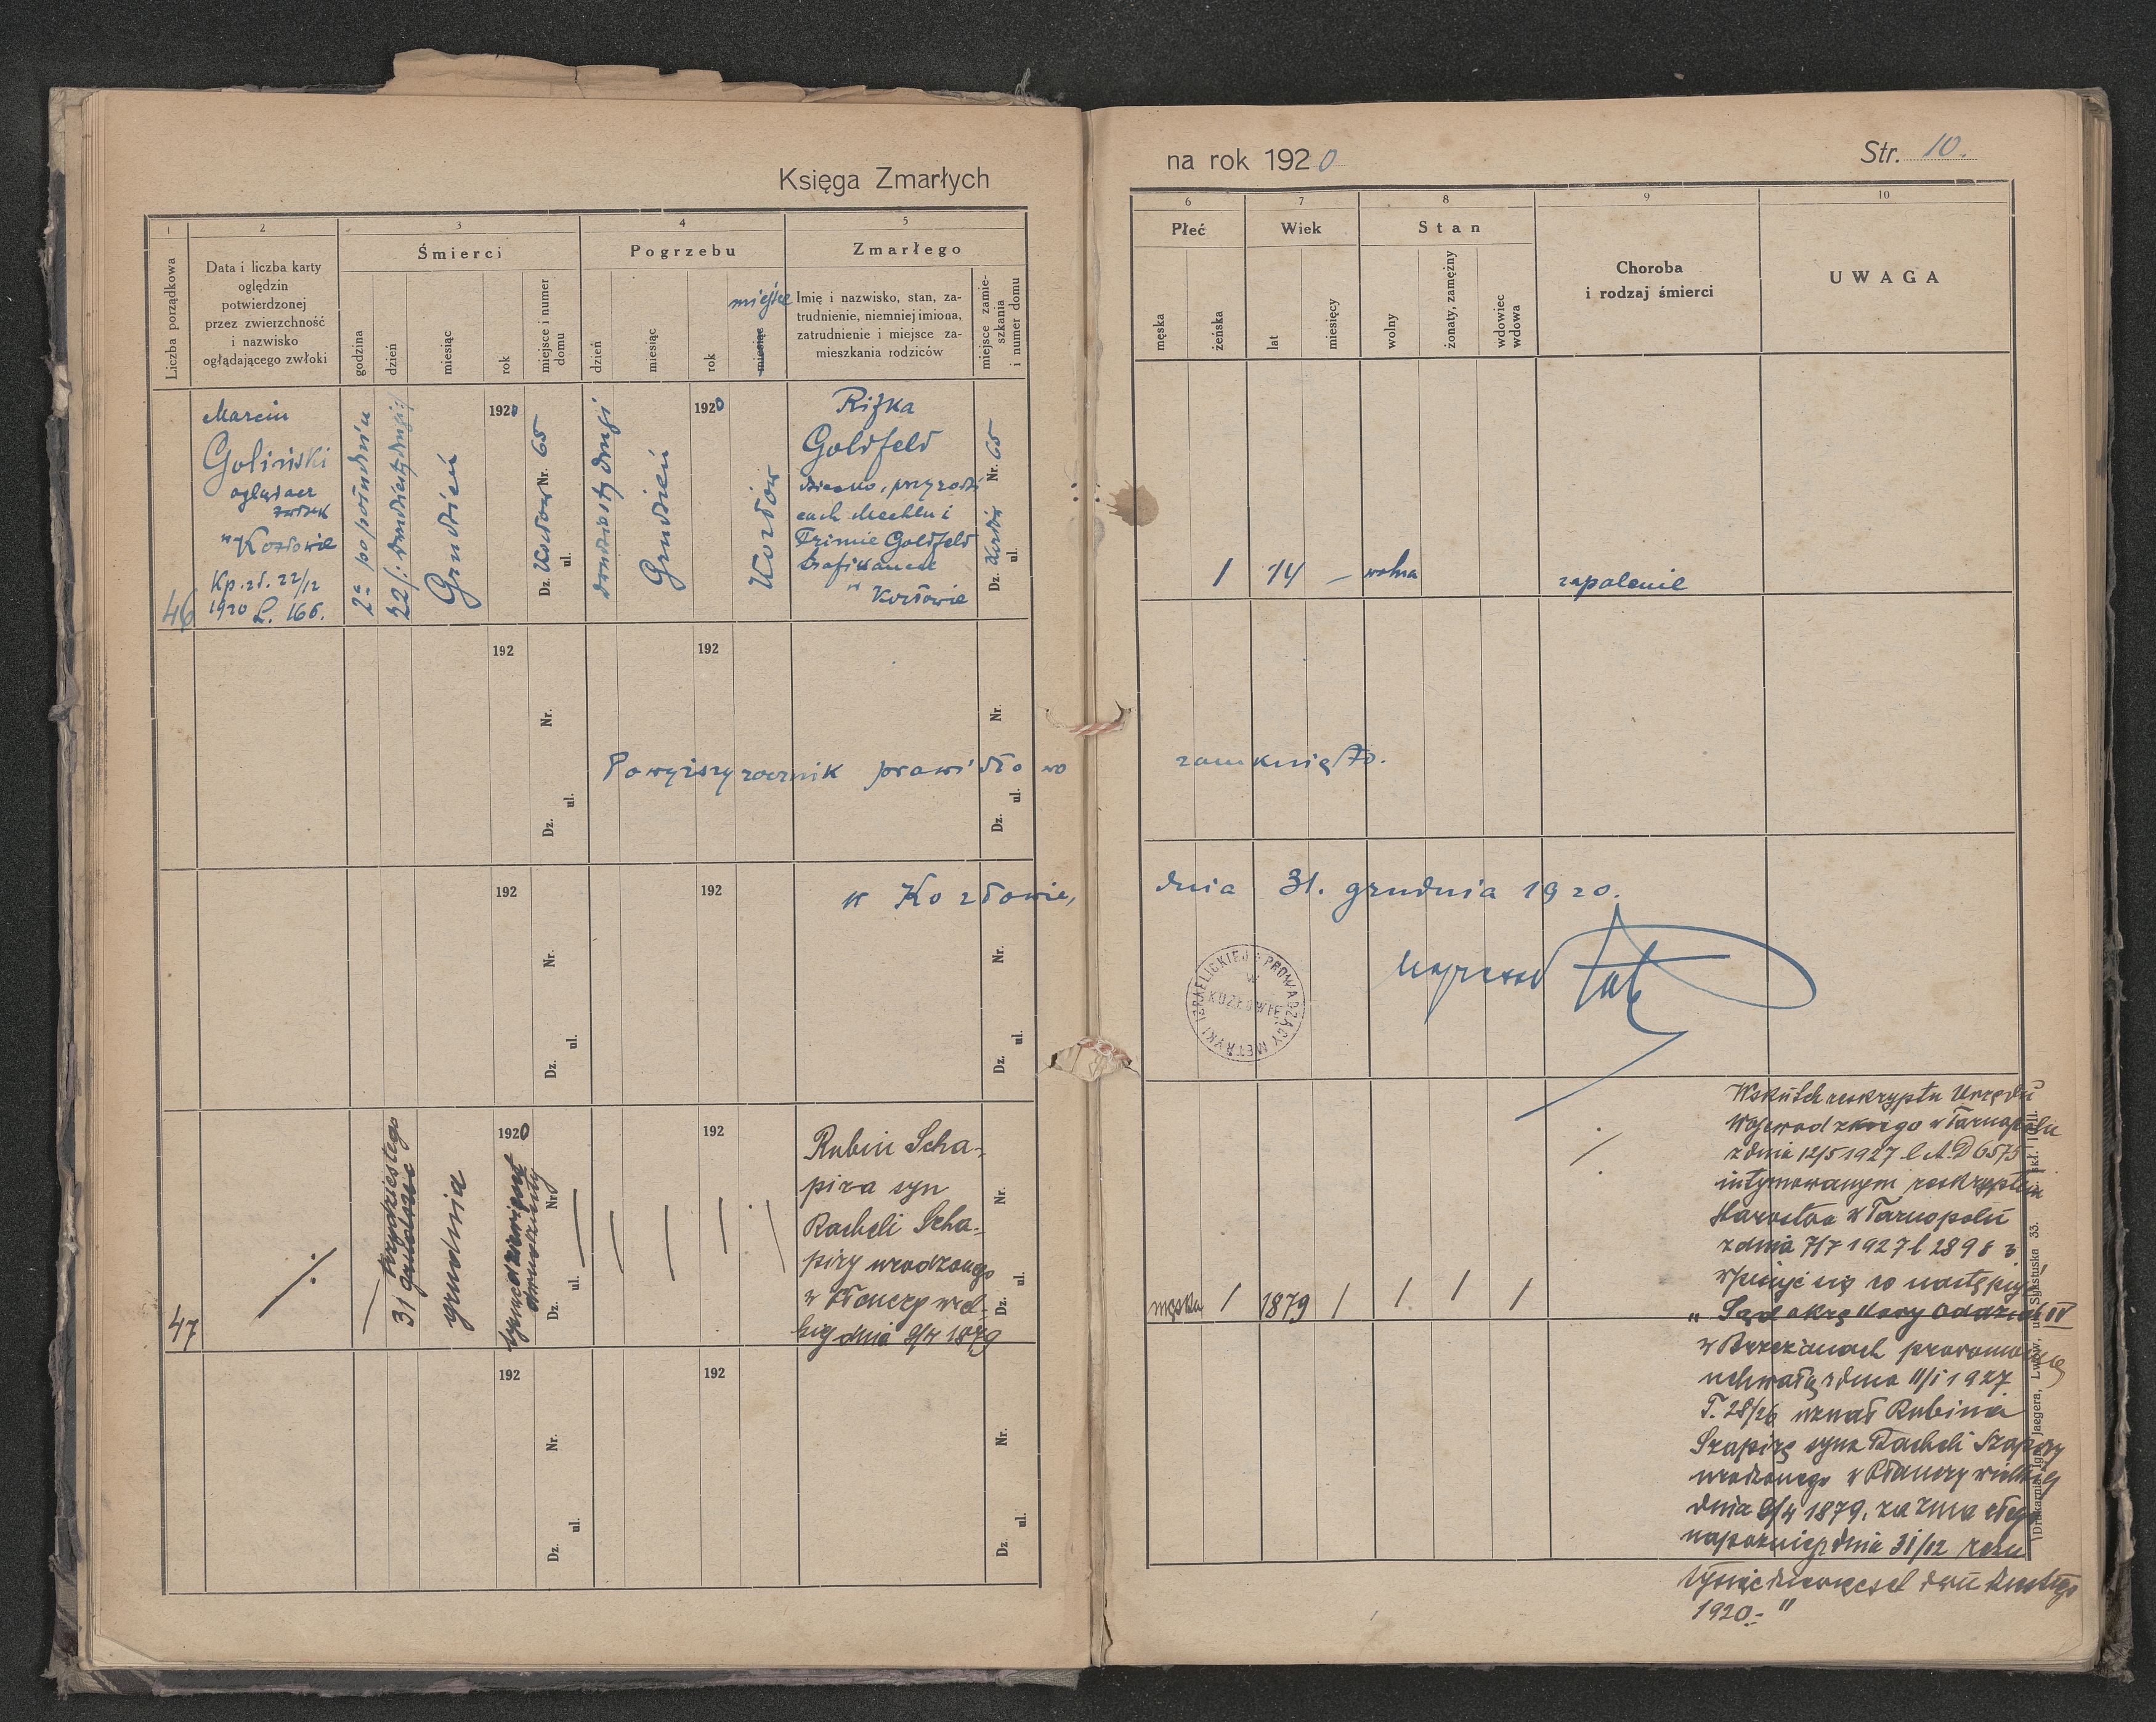 Księga Zmarłych
1
2
3
4
5
Liczba porządkowa
Data i liczba karty
oględzin
potwierdzonej
przez zwierzchność
i nazwisko
oglądającego zwłoki
Śmierci
godzina
dzień
miesiąc
rok
miejsce i numer
domu
Pogrzebu
dzień
miesiąc
rok
miejsce
miesiąc
Zmarłego
Imię i nazwisko, stan, za-
trudnienie, niemniej imiona,
zatrudnienie i miejsce za-
mieszkania rodziców
miejsce zamie-
szkania
i numer domu
46
Marcin
Goliński
oglądacz
zwłok
w Kozłowie
Kp. zł. 22/12
1920 L. 166.
2a popołudniu
22 /: dwudziesty drugi :/
Grudzień
1920
Dz. Kozłów Nr. 65
ul.
dwudziesty drugi
Grudzień
1920
Kozłów
Rifka
Goldfeld
dziecko, przy rodzi
cach Mechlu i
Frimie Goldfeld
trafikancie
w Kozłowie
Dz. Kozłów Nr. 65
ul.
192
192
Nr.
Nr.
Dz. ul.
Dz. ul.
Powyższy rocznik prawidłowo
192
192
w Kozłowie,
Nr.
Nr.
Dz. ul.
Dz. ul.
47
31 trzydziestego
grudnia
1920
tysiąc
Nr.
Dz. ul.
192
Rubin Scha-
pira syn
Racheli Scha-
piry urodzonego
w Płauczy wiel-
kiej dnia 9/4 1879
Nr.
Dz. ul.
192
192
Nr.
Nr.
Dz. ul.
Dz. ul.
na rok 1920
Str. 10.
6
7
8
9
10
Płeć
męska
żeńska
Wiek
lat
miesięcy
Stan
wolny
żonaty, zamężny
wdowiec
wdowa
Choroba
i rodzaj śmierci
UWAGA
1 14 — wolna zapalenie
zamknięto.
dnia 31. grudnia 1920.
PROWADZĄCY METRYKI IZRAELICKIEJ
W
KOZŁOWIE
męska / 1879 / / / /
Wskutek reskryptu Urzędu
Wojewodzkiego w Tarnopolu
z dnia 12/5 1927 l. A.D 6575
intymowanym reskryptem
Starostwa w Tarnopolu
z dnia 7/7 1927 l 2898
wpisuje się co następuje
„ Sąd okręgowy Oddział IV
w Brzeżanach prawomocną
uchwałą z dnia 11/1 1927
T. 28/26 uznał Rubina
Szapirę syna Racheli Szapiry
urodzonego w Płauczy wielkiej
dnia 9/4 1879, za zmarłego
najpóźniej dnia 31/12 roku
tysiąc dziewięćset dwudziestego
1920.- "
Drukarnia Ign. Jaegera, Lwów, ul. Sykstuska 33.